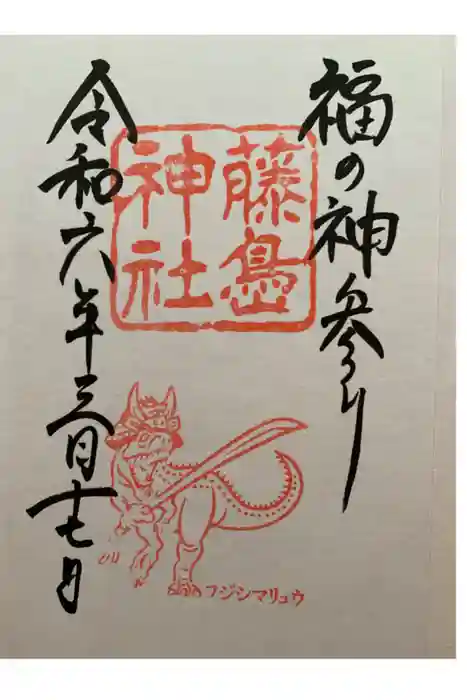 福の神参り
藤島
神社
令和六年三月十七日
フジシマリュウ